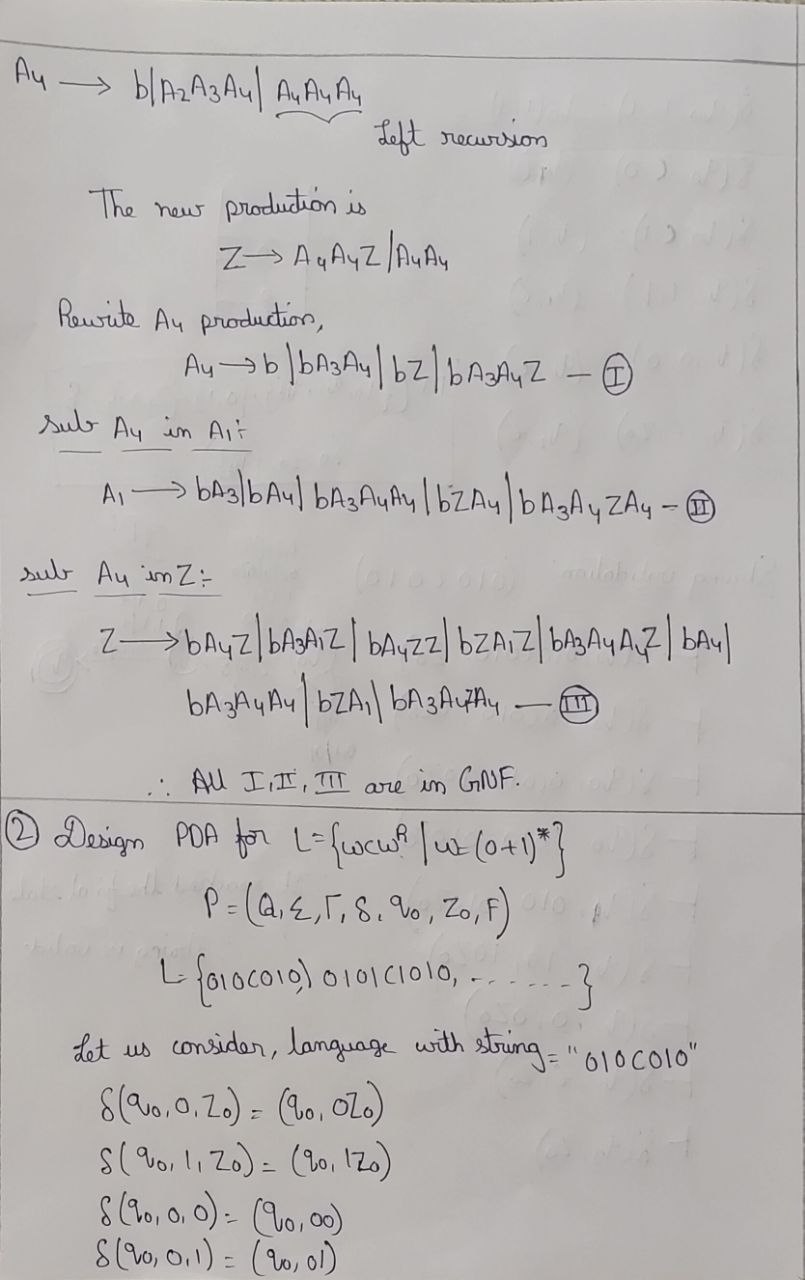 A₄ → b|A₂A₃A₄| A₄A₄A₄
Left recursion
The new production is
Z → A₄A₄Z|A₄A₄
Rewrite A₄ production,
A₄ → b|bA₃A₄|bZ|bA₃A₄Z — Ⓘ
sub A₄ in A₁:-
A₁ → bA₃|bA₄|bA₃A₄A₄|bZA₄|bA₃A₄ZA₄ - Ⅱ
sub A₄ in Z:-
Z → bA₄Z|bA₃A₁Z|bA₄ZZ|bZA₁Z|bA₃A₄A₄Z|bA₄|
bA₃A₄A₄|bZA₁|bA₃A₄ZA₄ — Ⅲ
∴ All I, II, III are in GNF.
② Design PDA for L={wcwᴿ | w=(0+1)*}
P = (Q, Σ, Γ, δ, q₀, Z₀, F)
L={010C010, 0101C1010, ......}
Let us consider, language with string = "010C010"
δ(q₀, 0, Z₀) = (q₀, 0Z₀)
δ(q₀, 1, Z₀) = (q₀, 1Z₀)
δ(q₀, 0, 0) = (q₀, 00)
δ(q₀, 0, 1) = (q₀, 01)